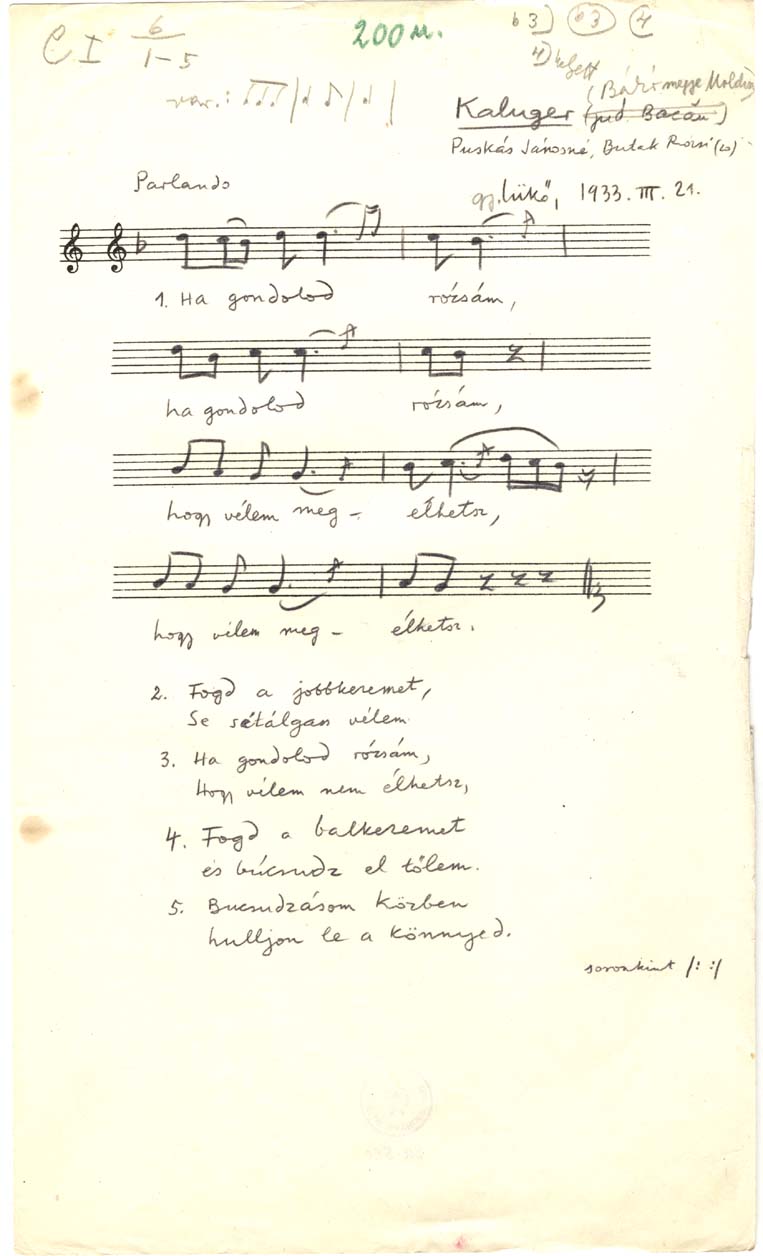 C I 6/1-5
200 M.
b3) b3 4
4) helyett
var.:
(Bákó megye Moldva)
Kaluger (jud Bacău)
Puskás Jánosné, Butak Rózsi (20)
Parlando
gy. Lükő, 1933. III. 21.
1. Ha gondolod rózsám,
ha gondolod rózsám,
hogy vélem meg - élhetsz,
hogy vélem meg - élhetsz.
2. Fogd a jobbkezemet,
Se sétálgass vélem
3. Ha gondolod rózsám,
Hogy vélem nem élhetsz,
4. Fogd a balkezemet
és búcsudz el tőlem.
5. Bucsudzásom közben
hulljon le a könnyed.
soronkint /: :/